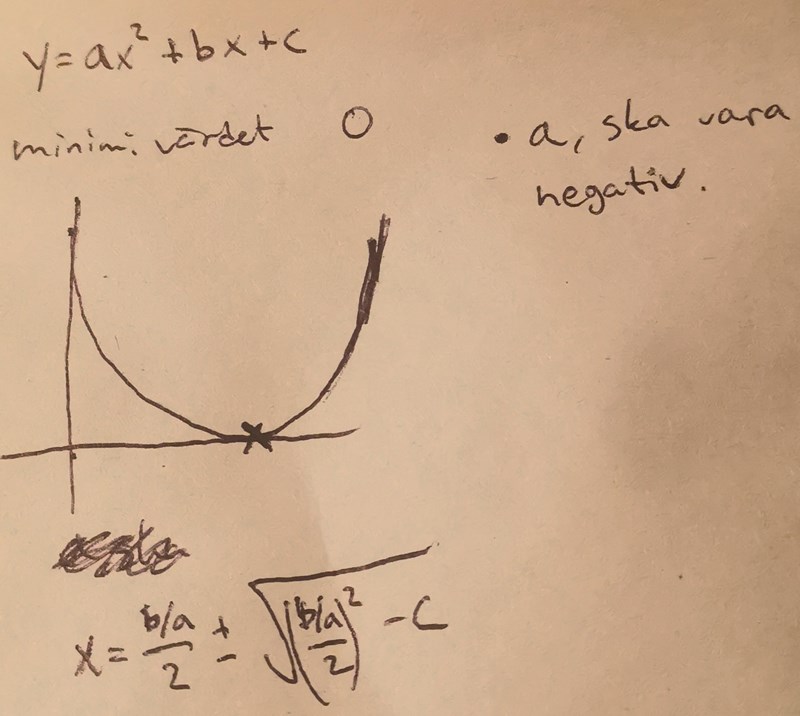 y=ax²+bx+c
minimi värdet 0
• a, ska vara
negativ.
x = \frac{b/a}{2} ± \sqrt{\left(\frac{b/a}{2}\right)^2 - c}